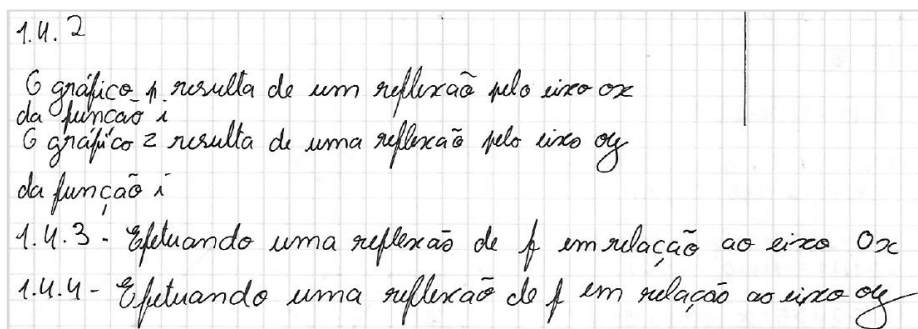 1.4.2
O gráfico p resulta de um reflexão pelo eixo ox
da função i
O gráfico z resulta de uma reflexão pelo eixo oy
da função i
1.4.3 - Efetuando uma reflexão de f em relação ao eixo Ox
1.4.4 - Efetuando uma reflexão de f em relação ao eixo oy